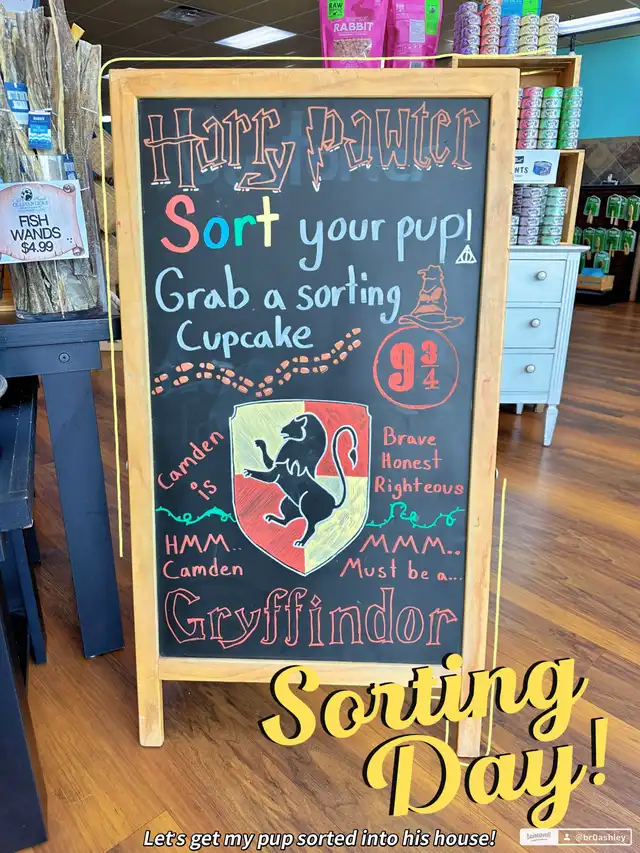 RAW
RABBIT
Harry Pawter
Sort your pup!
Grab a sorting
Cupcake
9 3/4
FISH
WANDS
$4.99
Camden
is
Brave
Honest
Righteous
HMM..
Camden
MMM..
Must be a...
Gryffindor
Sorting
Day!
Let's get my pup sorted into his house!
@br0ashley